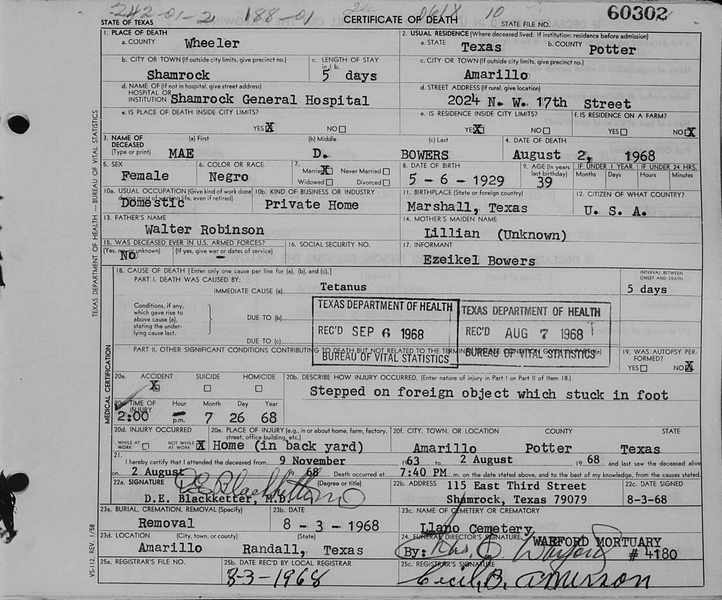 242-01-2 188-01 10
STATE OF TEXAS CERTIFICATE OF DEATH STATE FILE NO. 60302
1. PLACE OF DEATH 2. USUAL RESIDENCE (Where deceased lived. If institution: residence before admission)
a. COUNTY Wheeler a. STATE Texas b. COUNTY Potter
b. CITY OR TOWN (If outside city limits, give precinct no.) c. LENGTH OF STAY c. CITY OR TOWN (If outside city limits, give precinct no.)
Shamrock 5 days Amarillo
d. NAME OF (If not in hospital, give street address) d. STREET ADDRESS (If rural, give location)
HOSPITAL OR
INSTITUTION Shamrock General Hospital 2024 N. W. 17th Street
e. IS PLACE OF DEATH INSIDE CITY LIMITS? e. IS RESIDENCE INSIDE CITY LIMITS? f. IS RESIDENCE ON A FARM?
YES X NO YES X NO YES NO X
3. NAME OF DECEASED (a) First (b) Middle (c) Last 4. DATE OF DEATH
(Type or print) MAE D. BOWERS August 2, 1968
5. SEX 6. COLOR OR RACE 7. Married X Never Married 8. DATE OF BIRTH 9. AGE (In years last birthday) IF UNDER 1 YEAR IF UNDER 24 HRS.
Female Negro Widowed Divorced 5 - 6 - 1929 39 Months Days Hours Minutes
10a. USUAL OCCUPATION (Give kind of work done 10b. KIND OF BUSINESS OR INDUSTRY 11. BIRTHPLACE (State or foreign country) 12. CITIZEN OF WHAT COUNTRY?
Domestic Private Home Marshall, Texas U. S. A.
13. FATHER'S NAME 14. MOTHER'S MAIDEN NAME
Walter Robinson Lillian (Unknown)
15. WAS DECEASED EVER IN U.S. ARMED FORCES? 16. SOCIAL SECURITY NO. 17. INFORMANT
(Yes, no, or unknown) (If yes, give war or dates of service)
No - Ezeikel Bowers
18. CAUSE OF DEATH [Enter only one cause per line for (a), (b), and (c).] INTERVAL BETWEEN ONSET AND DEATH
PART I. DEATH WAS CAUSED BY:
IMMEDIATE CAUSE (a) Tetanus 5 days
Conditions, if any, which gave rise to above cause (a), stating the underlying cause last.
DUE TO (b)
DUE TO (c)
TEXAS DEPARTMENT OF HEALTH
REC'D SEP 6 1968
BUREAU OF VITAL STATISTICS
TEXAS DEPARTMENT OF HEALTH
REC'D AUG 7 1968
BUREAU OF VITAL STATISTICS
PART II. OTHER SIGNIFICANT CONDITIONS CONTRIBUTING TO DEATH BUT NOT RELATED TO THE TERMINAL 19. WAS AUTOPSY PERFORMED?
YES NO X
20a. ACCIDENT SUICIDE HOMICIDE 20b. DESCRIBE HOW INJURY OCCURRED. (Enter nature of injury in Part I or Part II of Item 18.)
X Stepped on foreign object which stuck in foot
20c. TIME OF INJURY Hour Month Day Year
2:00 p.m. 7 26 68
20d. INJURY OCCURRED 20e. PLACE OF INJURY (e.g., in or about home, farm, factory, street, office building, etc.) 20f. CITY, TOWN, OR LOCATION COUNTY STATE
WHILE AT WORK NOT WHILE AT WORK X Home (in back yard) Amarillo Potter Texas
21. I hereby certify that I attended the deceased from 9 November 1963 to 2 August 1968 and last saw the deceased alive
on 2 August 68 Death occurred at 7:40 P.M. m. on the date stated above, and to the best of my knowledge, from the causes stated.
22a. SIGNATURE (Degree or title) 22b. ADDRESS 115 East Third Street 22c. DATE SIGNED
D.E. Blackketter, M.D. Shamrock, Texas 79079 8-3-68
23a. BURIAL, CREMATION, REMOVAL (Specify) 23b. DATE 23c. NAME OF CEMETERY OR CREMATORY
Removal 8 - 3 - 1968 Llano Cemetery
23d. LOCATION (City, town, or county) (State) 24. FUNERAL DIRECTOR'S SIGNATURE WARFORD MORTUARY
Amarillo Randall, Texas By: Warford # 4180
25a. REGISTRAR'S FILE NO. 25b. DATE REC'D BY LOCAL REGISTRAR 25c. REGISTRAR'S SIGNATURE
8-3-1968 Cecil B. Emerson
TEXAS DEPARTMENT OF HEALTH — BUREAU OF VITAL STATISTICS
MEDICAL CERTIFICATION
VS-112, REV. 1/58